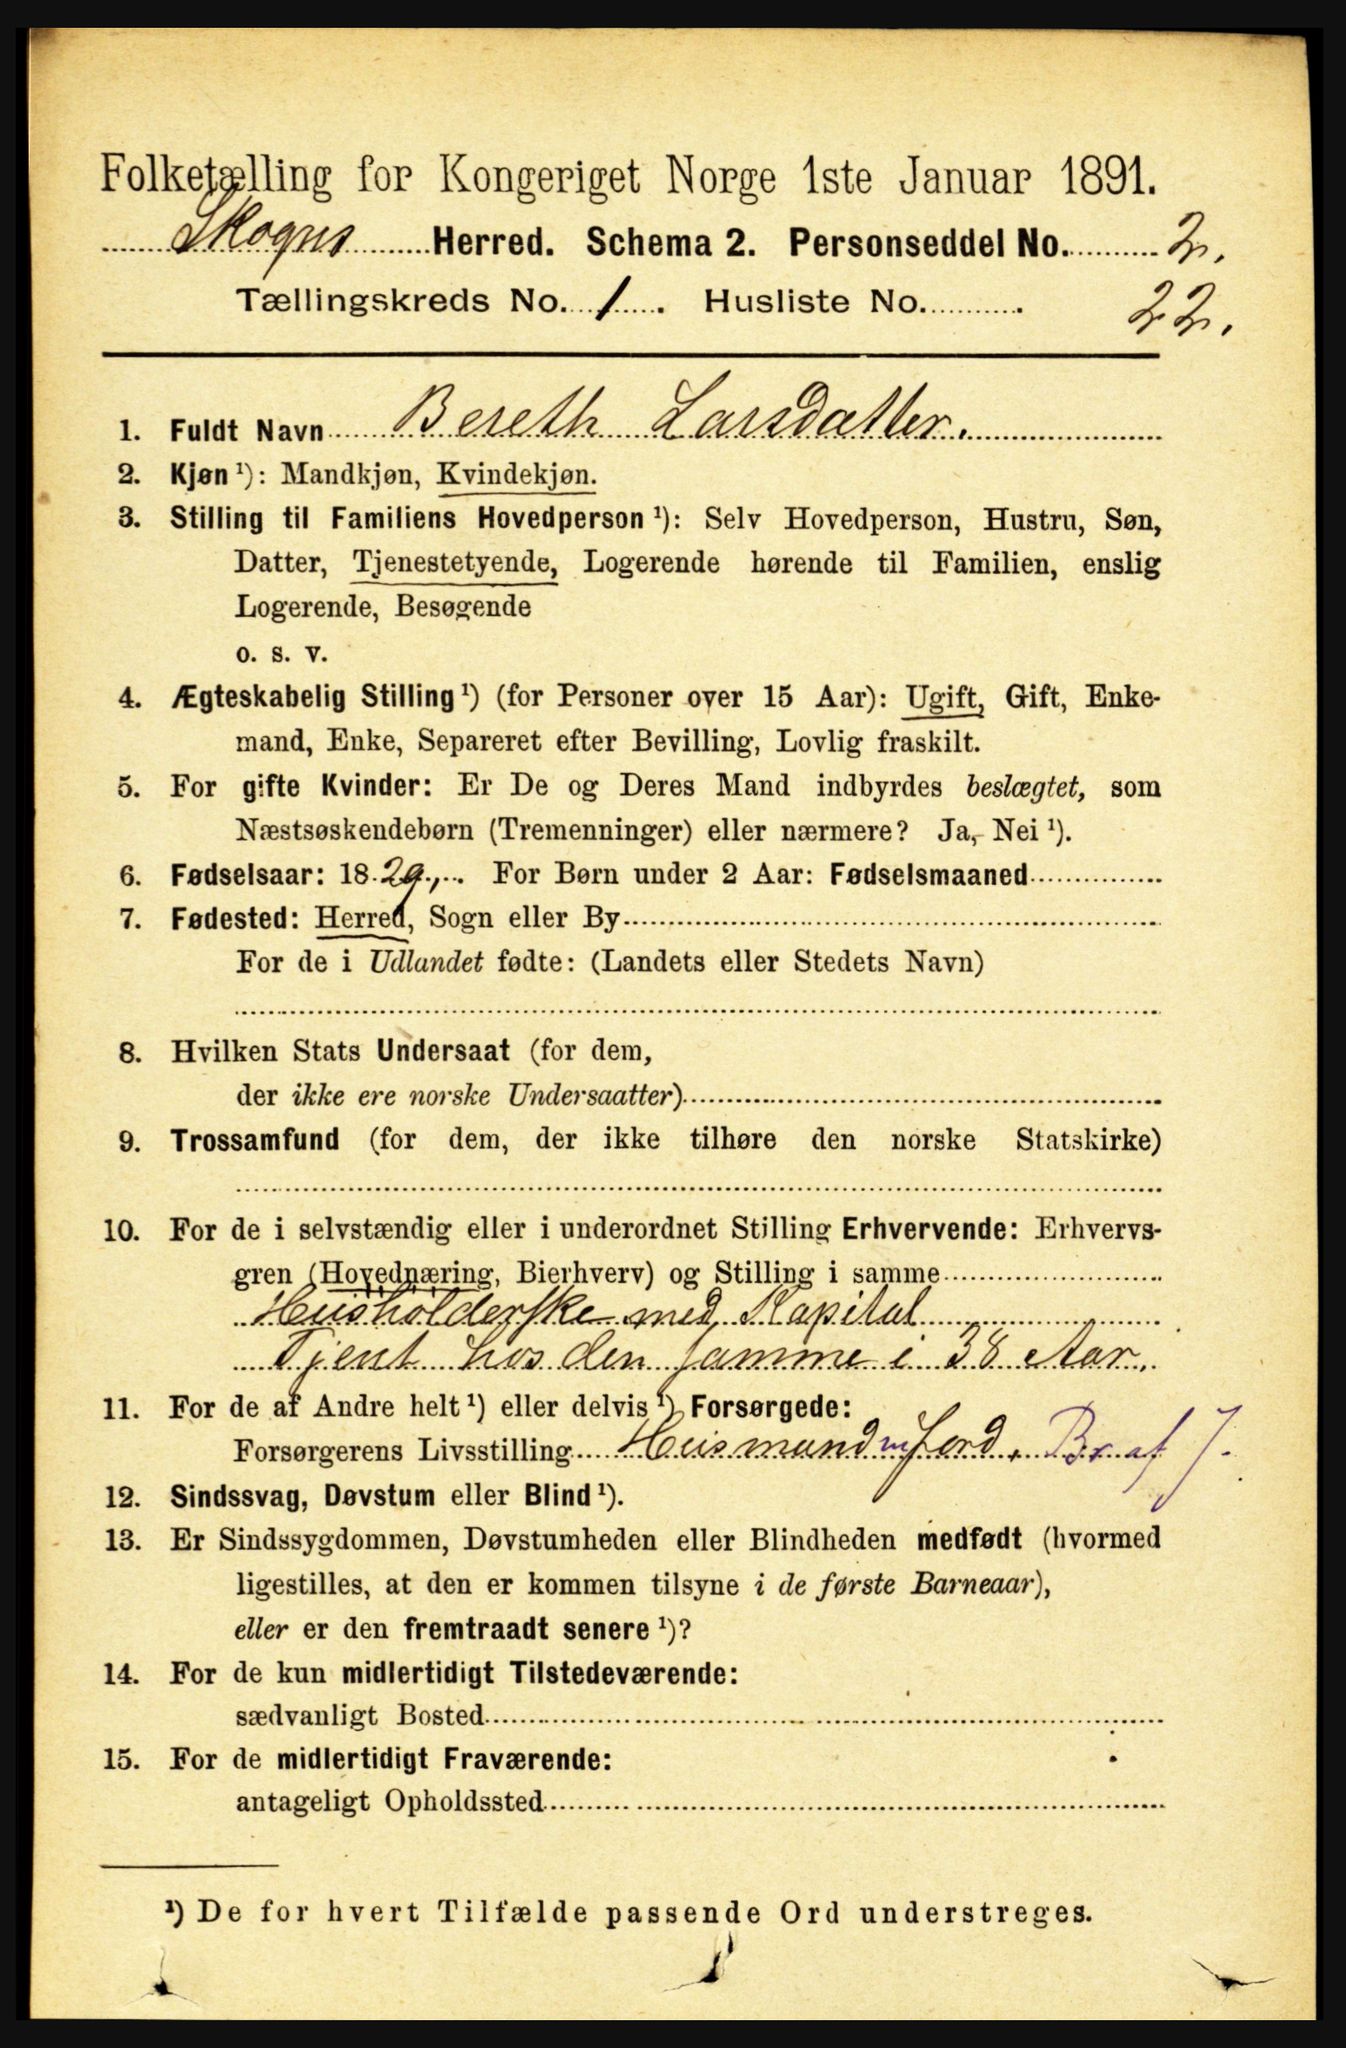 Folketælling for Kongeriget Norge 1ste Januar 1891.
Skogns Herred. Schema 2. Personseddel No. 2.
Tællingskreds No. 1. Husliste No. 22.
1. Fuldt Navn Bereth Larsdatter.
2. Kjøn ¹): Mandkjøn, Kvindekjøn.
3. Stilling til Familiens Hovedperson ¹): Selv Hovedperson, Hustru, Søn,
Datter, Tjenestetyende, Logerende hørende til Familien, enslig
Logerende, Besøgende
o. s. v.
4. Ægteskabelig Stilling ¹) (for Personer over 15 Aar): Ugift, Gift, Enke-
mand, Enke, Separeret efter Bevilling, Lovlig fraskilt.
5. For gifte Kvinder: Er De og Deres Mand indbyrdes beslægtet, som
Næstsøskendebørn (Tremenninger) eller nærmere? Ja, Nei ¹).
6. Fødselsaar: 1829, For Børn under 2 Aar: Fødselsmaaned
7. Fødested: Herred, Sogn eller By
For de i Udlandet fødte: (Landets eller Stedets Navn)
8. Hvilken Stats Undersaat (for dem,
der ikke ere norske Undersaatter)
9. Trossamfund (for dem, der ikke tilhøre den norske Statskirke)
10. For de i selvstændig eller i underordnet Stilling Erhvervende: Erhvervs-
gren (Hovednæring, Bierhverv) og Stilling i samme
Husholderske med Kapital
Tjent hos den samme i 38 Aar.
11. For de af Andre helt ¹) eller delvis ¹) Forsørgede:
Forsørgerens Livsstilling Husmand m Jord. Br. af J.
12. Sindssvag, Døvstum eller Blind ¹).
13. Er Sindssygdommen, Døvstumheden eller Blindheden medfødt (hvormed
ligestilles, at den er kommen tilsyne i de første Barneaar),
eller er den fremtraadt senere ¹)?
14. For de kun midlertidigt Tilstedeværende:
sædvanligt Bosted
15. For de midlertidigt Fraværende:
antageligt Opholdssted
¹) De for hvert Tilfælde passende Ord understreges.